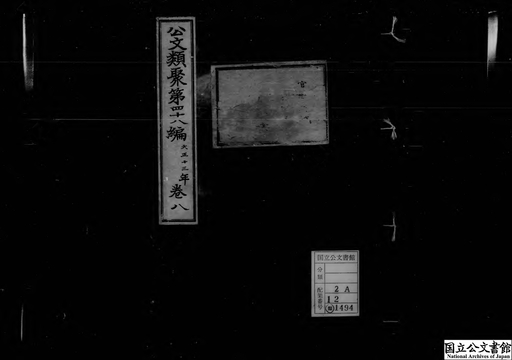 公文類聚第四十八編大正十三年巻八
官
国立公文書館
分類
配架番号
2A
12
類1494
国立公文書館
National Archives of Japan